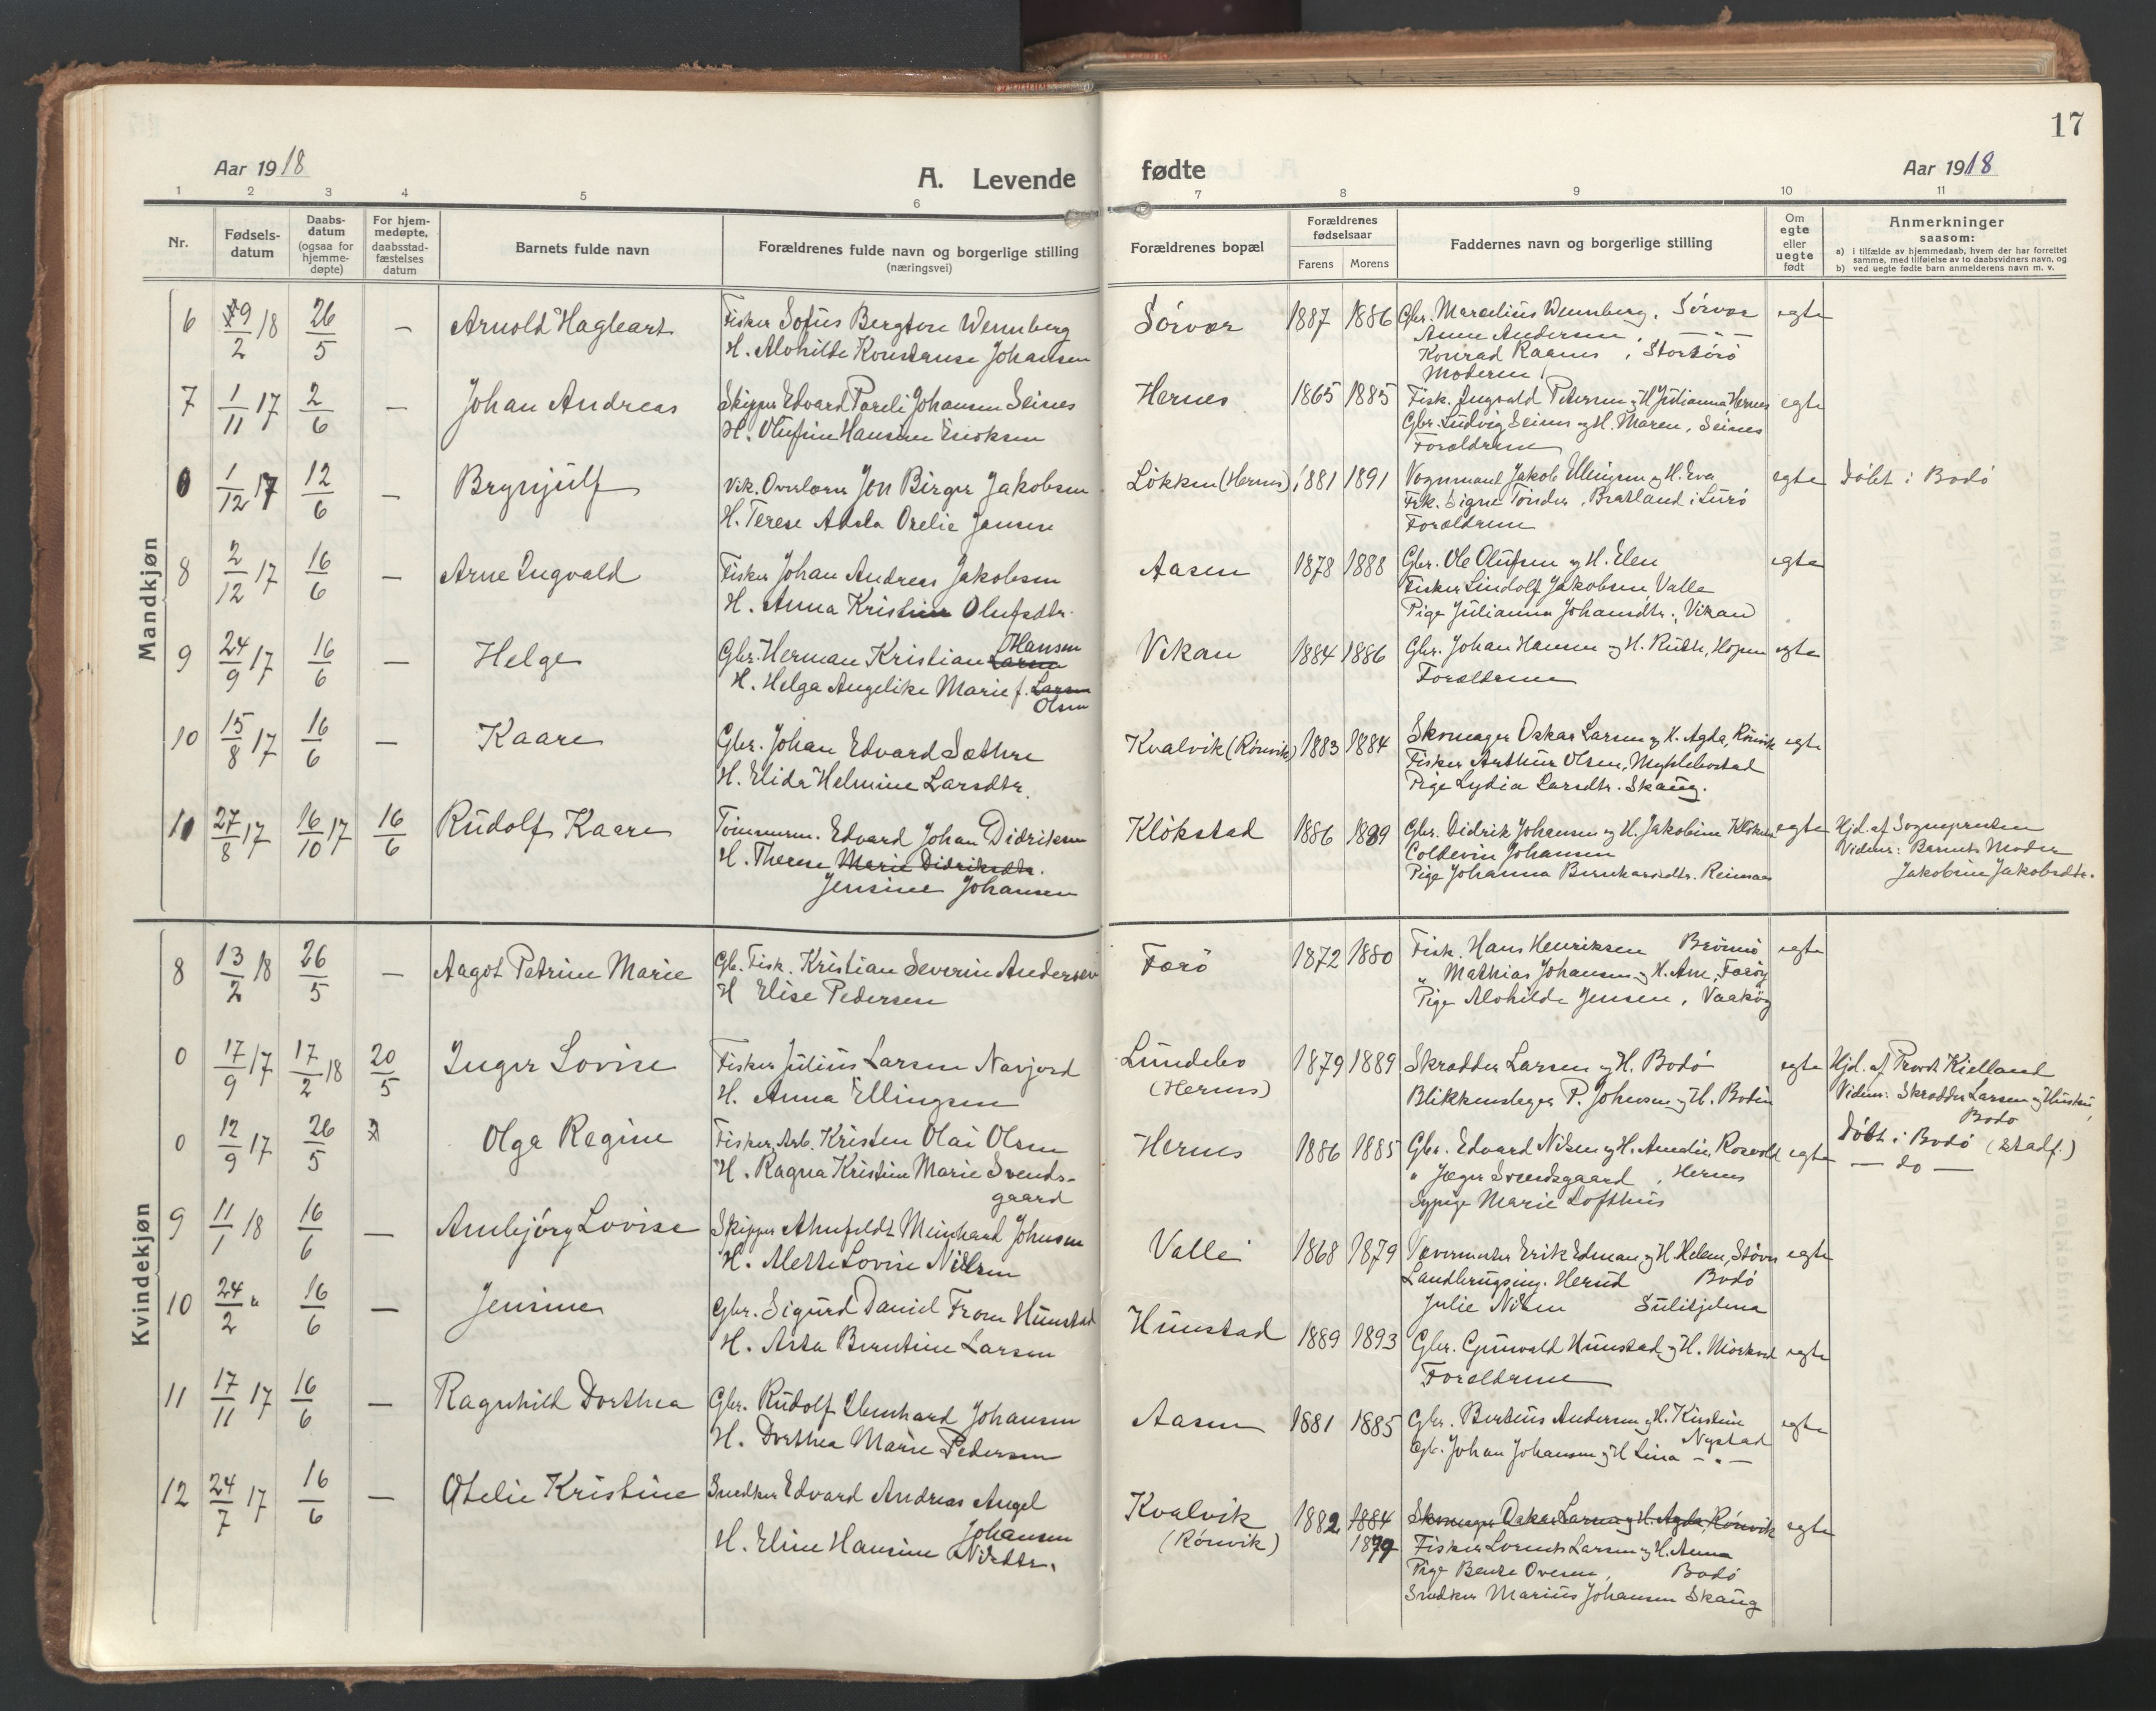 17
Aar 1918
A. Levende fødte
Aar 1918
1 2 3 4 5 6 7 8 9 10 11
Nr.
Fødsels-
datum
Daabs-
datum
(ogsaa for
hjemme-
døpte)
For hjem-
medøpte,
daabsstad-
fæstelses
datum
Barnets fulde navn
Forældrenes fulde navn og borgerlige stilling
(næringsvei)
Forældrenes bopæl
Forældrenes
fødselsaar
Farens Morens
Faddernes navn og borgerlige stilling
Om
egte
eller
uegte
født
Anmerkninger
saasom:
a) i tilfælde av hjemmedaab, hvem der har forrettet
samme, med tilføielse av to daabsvidners navn, og
b) ved uegte fødte barn anmelderens navn m. v.
Mandkjøn
6 19/2 18 26/5 — Arnold Hagbart
Fisker Sofus Bergton Wennberg
H. Alvhilde Konstanse Johansen
Sörvær 1887 1886
Gbr. Marcelius Wennberg, Sörvær
Anne Andersen, — " —
Konrad Raanes, Stortörö
Moderen
egte
7 1/11 17 2/6 — Johan Andreas
Skipper Edvard Pareli Johansen Seines
H. Olufine Hansine Eriksen
Hernes 1865 1885
Fisk. Ingvald Petersen og H. Julianna, Hernes
Gbr. Ludvig Seines og H. Maren, Seines
Forældrene
egte
0 1/12 17 12/6 — Brynjulf
Vik. Overlærer Jon Birger Jakobsen
H. Terese Adela Orelie Jansen
Lökken (Hernes) 1881 1891
Vognmand Jakob Ellingsen og H. Eva
Frk. Signe Tönder, Bratland i Lurö
Forældrene
egte Döbt i Bodö
8 2/12 17 16/6 — Arne Ingvald
Fisker Johan Andreas Jakobsen
H. Anna Kristine Olufsdtr.
Aasen 1878 1888
Gbr. Ole Olufsen og H. Elen
Fisker Lindolf Jakobsen, Valle
Pige Julianna Johansdtr., Vikan
egte
9 24/9 17 16/6 — Helge
Hansen
Gbr. Herman Kristian Larsen
H. Helga Angelike Marie f. Larsen
Olsen
Vikan 1884 1886
Gbr. Johan Hansen og H. Ruth, Hopen
Forældrene
egte
10 15/8 17 16/6 — Kaare
Gbr. Johan Edvard Sæthre
H. Elida Helmine Larsdtr.
Kvalvik (Rönvik) 1883 1884
Skomager Oskar Larsen og H. Agda, Rönvik
Fisker Arthur Olsen, Myklebostad
Pige Lydia Larsdtr. Skaug.
egte
11 27/8 17 16/10 17 16/6 Rudolf Kaare
Tömmerm. Edvard Johan Didriksen
H. Therese Marie Didriksdtr.
Jensine Johansen
Klökstad 1886 1889
Gbr. Didrik Johansen og H. Jakobine Klökstad
Coldevin Johansen
Pige Johanna Bernhardsdtr. Reinaas
egte
Hjd. af Sognepresten
Vidner: Barnets Moder
Jakobine Jakobsdtr.
Kvindekjøn
8 13/2 18 26/5 — Aagot Petrine Marie
Gb. Fisk. Kristian Severin Andersen
H Elise Pedersen
Færö 1872 1880
Fisk. Hans Henriksen Brönnö
" Mathias Johansen og H. Ane, Færöy
Pige Alvhilde Jensen, Vaaköy
egte
0 17/9 17 17/2 18 20/5 Inger Lovise
Fisker Julius Larsen Navjord
H. Anna Ellingsen
Lundebo
(Hernes)
1879 1889
Skrædder Larsen og H. Bodö
Blikkenslager P. Johnsen og H. Bodin
egte
Hjd. af Provst Kielland
Vidner: Skrædder Larsen og Hustru,
Bodö
Döbt i Bodö (stadf.)
0 12/9 17 26/5 Olga Regine
Fisker, Arb. Kristen Olai Olsen
H. Ragna Kristine Marie Svends-
gaard
Hernes 1886 1885
Gbr. Edvard Nilsen og H. Amedie, Rosvold
" Jæger Svendsgaard, Hernes
Sypige Marie Lofthus
egte — do —
9 11/1 18 16/6 — Annbjörg Lovise
Skipper Ahnfeldt Meinhard Johnsen
H. Mette Lovise Nilsen
Valle 1868 1879
Værmester Erik Edman og H. Helene, Stöver
Landbrugsing. Herud Bodö
Julie Nilsen Sulitjelma
egte
10 24/2 " 16/6 — Jensine
Gbr. Sigurd Daniel From Hunstad
H. Asta Berntine Larsen
Hunstad 1889 1893
Gbr. Grunvald Hunstad og H. Mörkved
Forældrene
egte
11 17/11 17 16/6 — Ragnhild Dorthea
Gbr. Rudolf Edenhard Johansen
H. Dorthea Marie Pedersen
Aasen 1881 1885
Gbr. Berteus Andersen og H. Kirstine
Nystad
Gbr. Johan Johansen og H Lina — " —
egte
12 24/7 17 16/6 — Otelie Kristine
Snedker Edvard Andreas Angel
Johansen
H. Eline Hansine Nilsdtr.
Kvalvik
(Rönvik)
1882 1884
1879
Skomager Oskar Larsen og H. Agda, Rönvik
Fisker Lorents Larsen og H. Anna
Pige Bente Ovesen, Bodö
Snedker Marius Johansen Skaug
egte